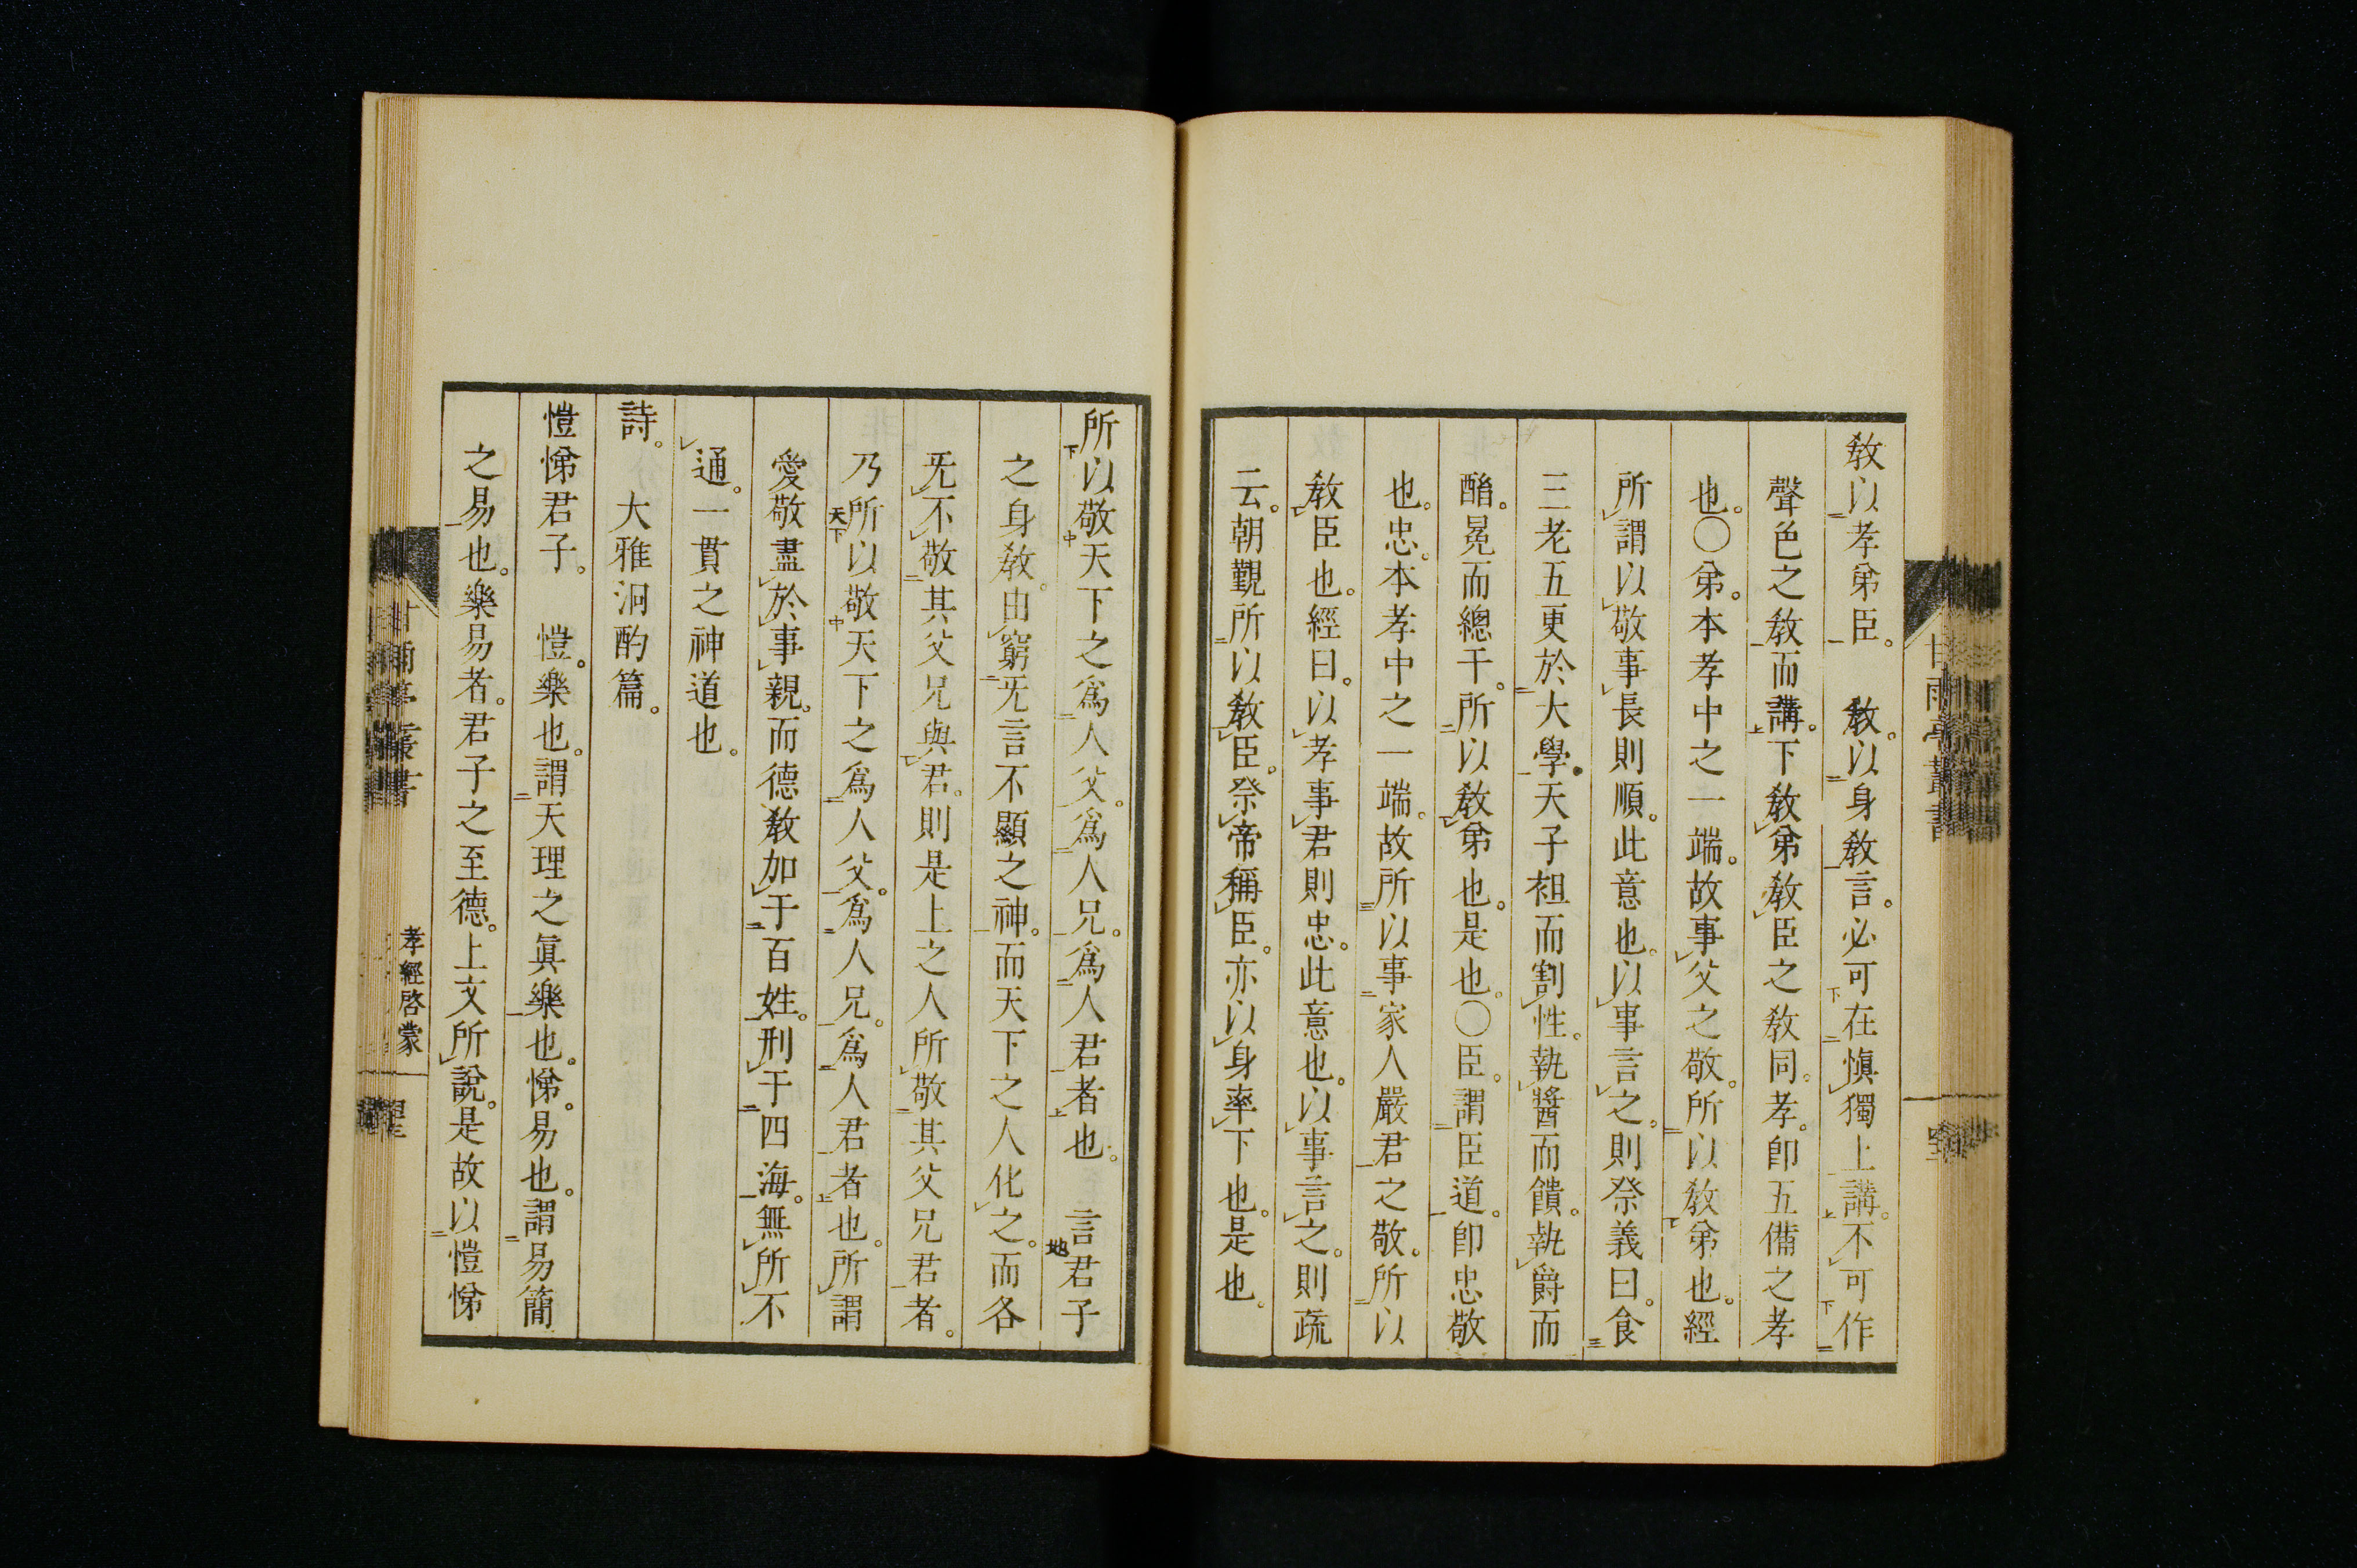 敎以孝弟臣。　敎。以身敎言。必可在愼獨上講。不可作
聲色之敎而講。下敎弟敎臣之敎同。孝。卽五備之孝
也。〇弟。本孝中之一端。故事父之敬。所以敎弟也。經
所謂以敬事長則順。此意也。以事言之。則祭義曰。食
三老五更於大學。天子袒而割牲。執醬而饋。執爵而
酳。冕而總干。所以敎弟也。是也。〇臣。謂臣道。卽忠敬
也。忠。本孝中之一端。故所以事家人嚴君之敬。所以
敎臣也。經曰。以孝事君則忠。此意也。以事言之。則疏
云。朝覲所以敎臣。祭帝稱臣。亦以身率下也。是也。
所以敬天下之爲人父。爲人兄。爲人君者也。　言君子
之身敎。由窮旡言不顯之神。而天下之人化之。而各
旡不敬其父兄與君。則是上之人所敬其父兄君者。
乃所以敬天下之爲人父。爲人兄。爲人君者也。所謂
愛敬盡於事親。而德敎加于百姓。刑于四海。無所不
通。一貫之神道也。
詩。　大雅泂酌篇。
愷悌君子。　愷。樂也。謂天理之眞樂也。悌。易也。謂易簡
之易也。樂易者。君子之至德。上文所說。是故以愷悌
甘雨亭叢書
孝經啓蒙